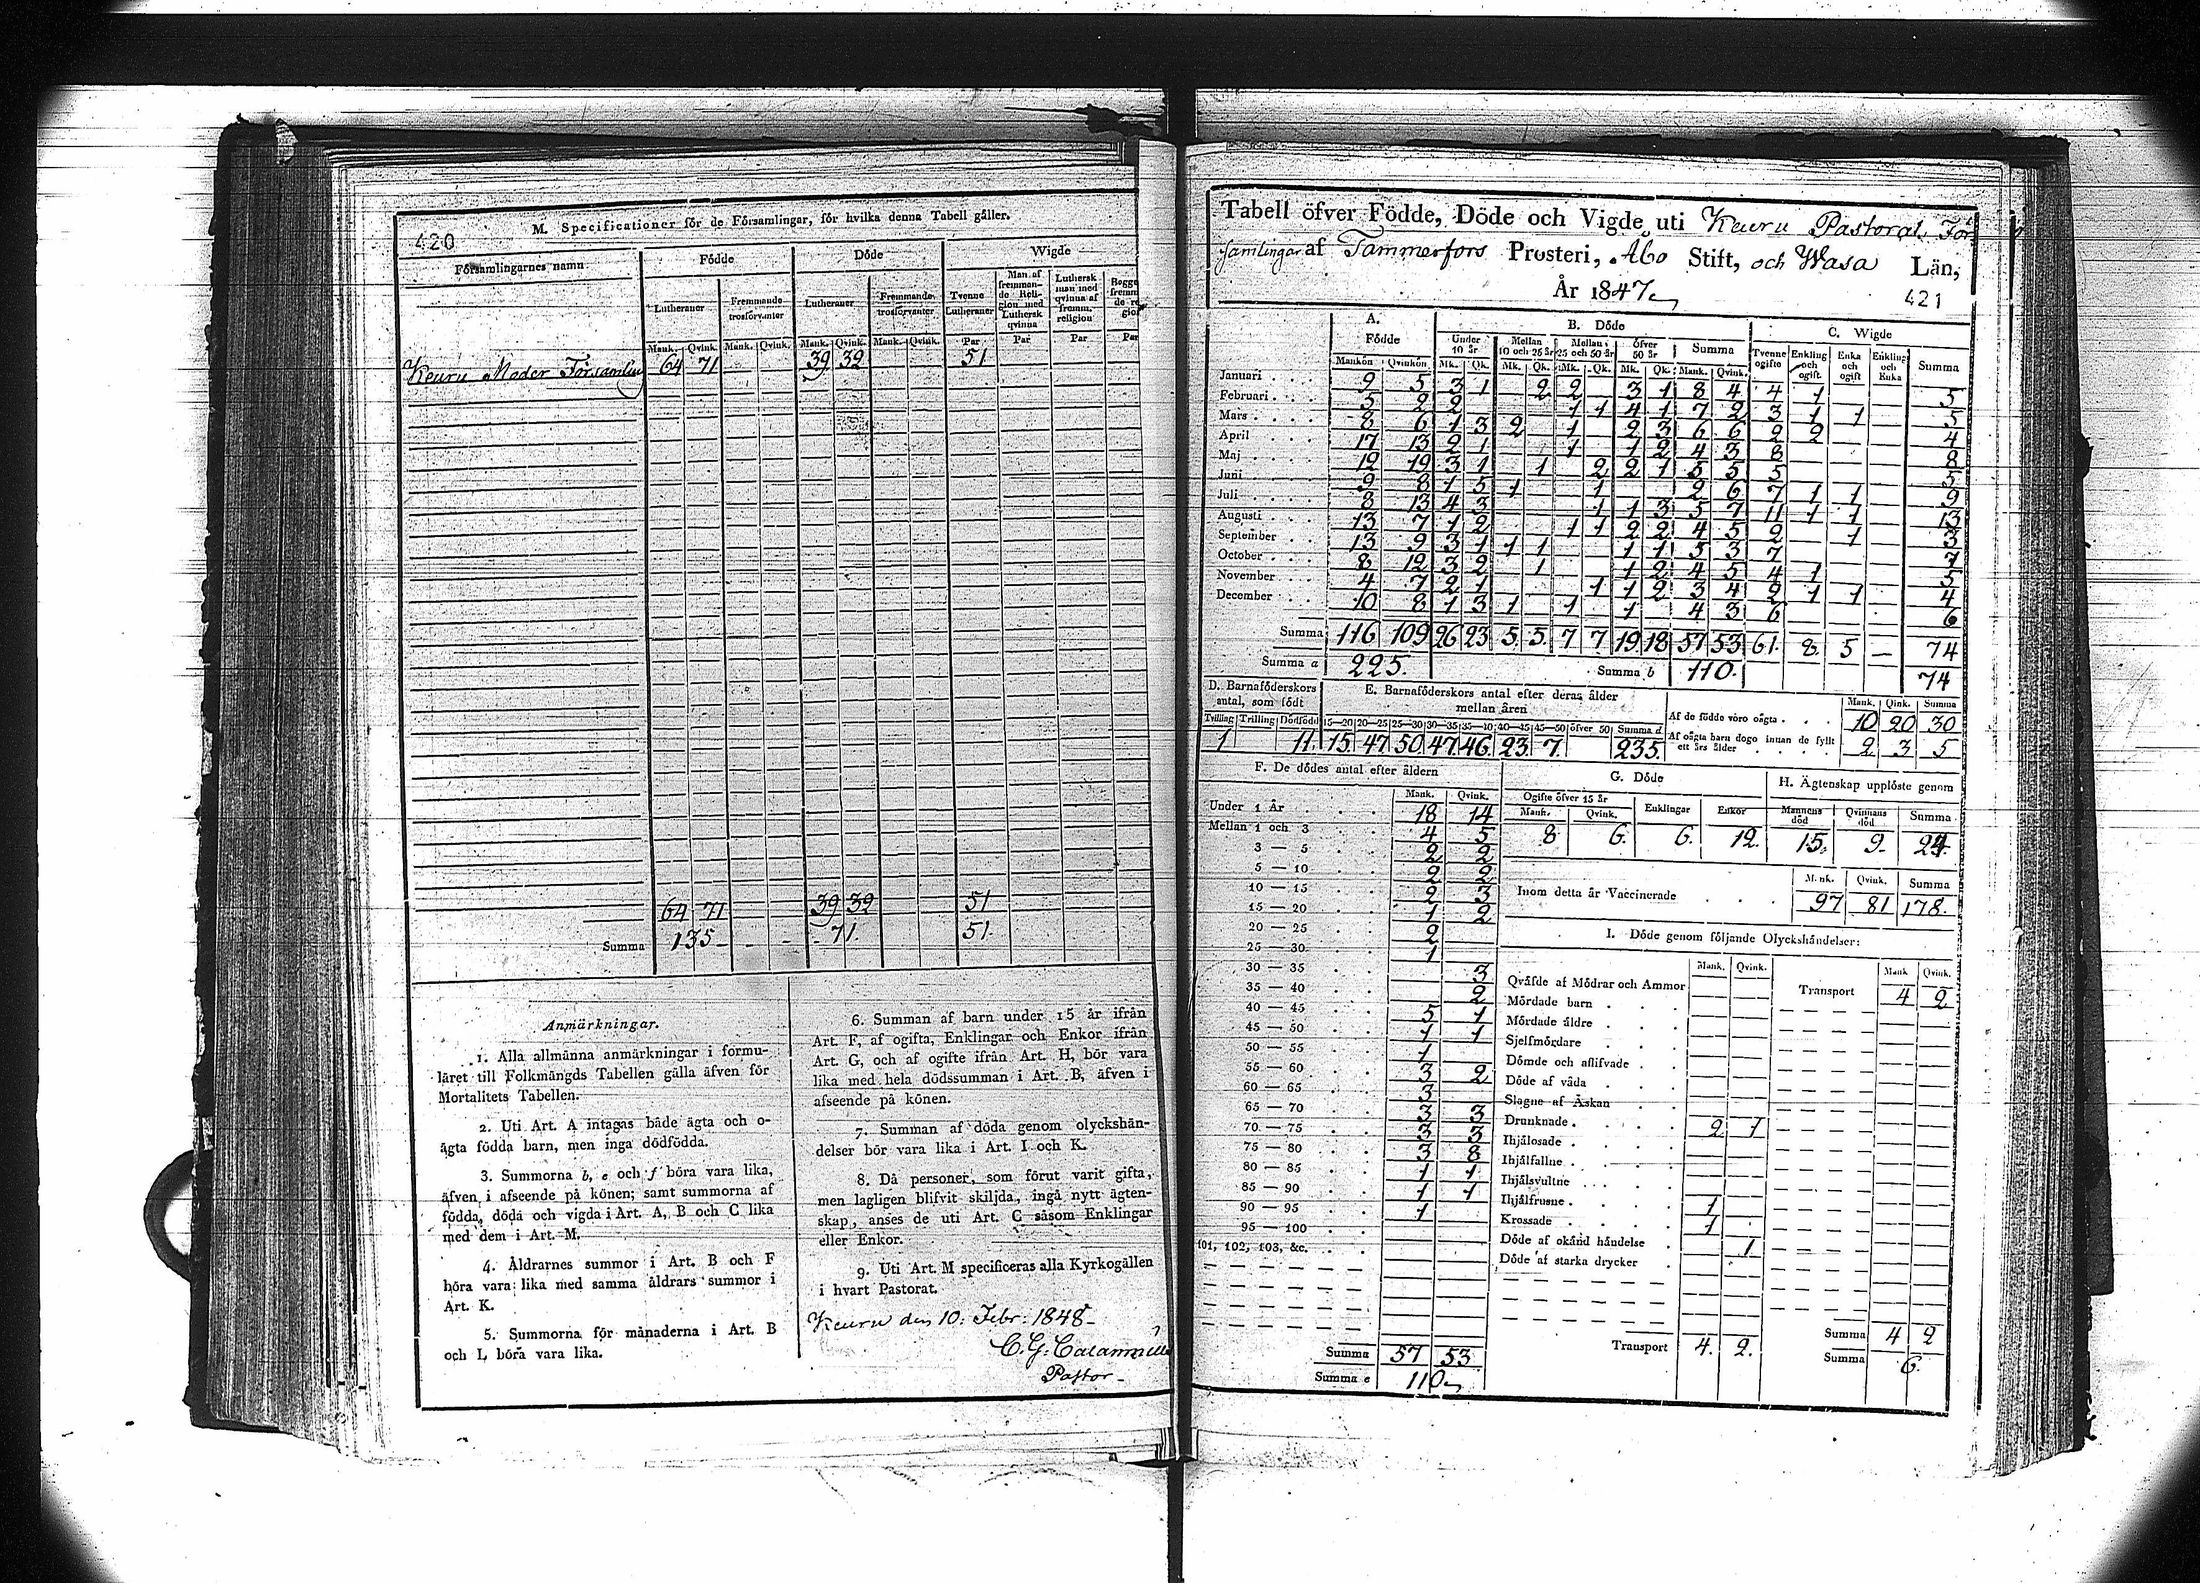 420
M. Specificationer för de Församlingar, för hvilka denna Tabell gäller.
Församlingarnes namn
Födde
Döde
Wigde
Lutheraner
Fremmande trosförvanter
Lutheraner
Fremmande trosförvanter
Tvenne Lutheraner
Man af fremmande Religion med Luthersk qvinna
Luthersk man med qvinna af fremm. religion
Mank. Qvink. Mank. Qvink. Mank. Qvink. Mank. Qvink. Par Par Par Par
Keuru Moder Församling 64 71 39 32 51
64 71 39 32 51
Summa 135 71. 51.
Anmärkningar.
1. Alla allmänna anmärkningar i formu-
läret till Folkmängds Tabellen gälla äfven för
Mortalitets Tabellen.
2. Uti Art. A intagas både ägta och o-
ägta födda barn, men inga dödfödda.
3. Summorna b, e och f böra vara lika,
äfven i afseende på könen; samt summorna af
födda, döda och vigda i Art. A, B och C lika
med dem i Art. M.
4. Åldrarnes summor i Art. B och F
böra vara lika med samma åldrars summor i
Art. K.
5. Summorna för månaderna i Art. B
och L böra vara lika.
6. Summan af barn under 15 år ifrån
Art. F, af ogifta, Enklingar och Enkor ifrån
Art. G, och af ogifte ifrån Art. H, bör vara
lika med hela dödssumman i Art. B, äfven i
afseende på könen.
7. Summan af döda genom olyckshän-
delser bör vara lika i Art. I och K.
8. Då personer, som förut varit gifta,
men lagligen blifvit skiljda, ingå nytt ägten-
skap, anses de uti Art. C såsom Enklingar
eller Enkor.
9. Uti Art. M specificeras alla Kyrkogällen
i hvart Pastorat.
Keuru den 10: Febr: 1848
C. G. Calamnius
Pastor
Tabell öfver Födde, Döde och Vigde uti Keuru Pastorat För
samlingar af Tammerfors Prosteri, Åbo Stift, och Wasa Län,
År 1847
421
A. Födde
B. Döde
C. Wigde
Under 10 år
Mellan 10 och 25 år
Mellan 25 och 50 år
öfver 50 år
Summa
Tvenne ogifte
Enkling och ogift
Enka och ogift
Enkling och Enka
Summa
Mankön Qvinkön Mk. Qk. Mk. Qk. Mk. Qk. Mk. Qk. Mank. Qvink.
Januari 9 5 3 1 2 2 3 1 8 4 4 1 5
Februari 5 2 2 1 1 4 1 7 2 3 1 1 5
Mars 8 6 1 3 2 1 2 3 6 6 2 2 4
April 17 13 2 1 1 1 2 4 3 8 8
Maj 12 19 3 1 1 2 2 1 5 5 5 5
Juni 9 8 1 5 1 1 2 6 7 1 1 9
Juli 8 13 4 3 1 1 3 5 7 11 1 1 13
Augusti 13 7 1 2 1 1 2 2 4 5 2 1 3
September 13 9 3 1 1 1 1 1 5 3 7 7
October 8 12 3 2 1 1 2 4 5 4 1 5
November 4 7 2 1 1 1 2 3 4 2 1 1 4
December 10 8 1 3 1 1 1 4 3 6 6
Summa 116 109 26 23 5. 5. 7 7 19 18 57 53 61. 8. 5 — 74
Summa a 225. Summa b 110. 74
D. Barnaföderskors antal, som födt
E. Barnaföderskors antal efter deras ålder mellan åren
Tvilling Trilling Dödfödd 15—20 20—25 25—30 30—35 35—40 40—45 45—50 öfver 50 Summa d
1 11. 15. 47 50 47 46 23 7. 235.
Mank. Qink. Summa
Af de födde voro oägta 10 20 30
Af oägta barn dogo innan de fyllt ett års ålder 2 3 5
F. De dödes antal efter åldern
Mank. Qvink.
Under 1 År 18 14
Mellan 1 och 3 4 5
3 — 5 2 2
5 — 10 2 2
10 — 15 2 3
15 — 20 1 2
20 — 25 2
25 — 30 1
30 — 35 3
35 — 40 2
40 — 45 5 1
45 — 50 1 1
50 — 55 1
55 — 60 3 2
60 — 65 3
65 — 70 3 3
70 — 75 3 3
75 — 80 3 8
80 — 85 1 1
85 — 90 1 1
90 — 95 1
95 — 100
101, 102, 103, &c.
Summa 57 53
Summa e 110
G. Döde
Ogifte öfver 15 år
Mank. Qvink. Enklingar Enkor
8 6. 6. 12.
H. Ägtenskap upplöste genom
Mannens död Qvinnans död Summa
15. 9. 24.
Mank. Qvink. Summa
Inom detta år Vaccinerade 97 81 178.
I. Döde genom följande Olyckshändelser:
Mank. Qvink. Mank Qvink.
Qväfde af Mödrar och Ammor
Transport 4 2
Mördade barn
Mördade äldre
Sjelfmördare
Dömde och aflifvade
Döde af våda
Slagne af Åskan
Drunknade 2 1
Ihjälosade
Ihjälfallne
Ihjälsvultne
Ihjälfrusne 1
Krossade 1
Döde af okänd händelse 1
Döde af starka drycker
Transport 4. 2.
Summa 4 2
Summa 6.